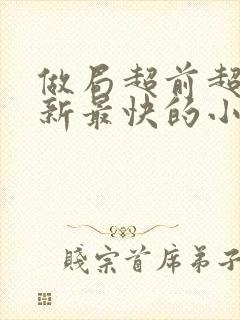 做局超前超
新最快的小
賤宗首席弟子